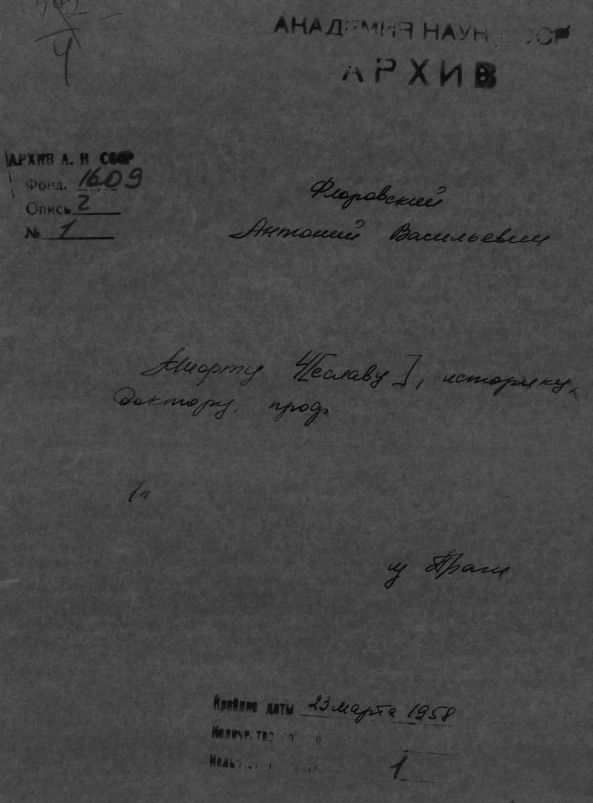 АКАДЕМИЯ НАУК СССР
АРХИВ
АРХИВ А. Н СССР
Фонд. 1609
Опись 2
№ 1
Флоровский
Антоний Васильевич
Аморту Ч[еславу], историку,
доктору, проф.
1п
из Праги
Крайние даты 23 марта 1958
Количество
1